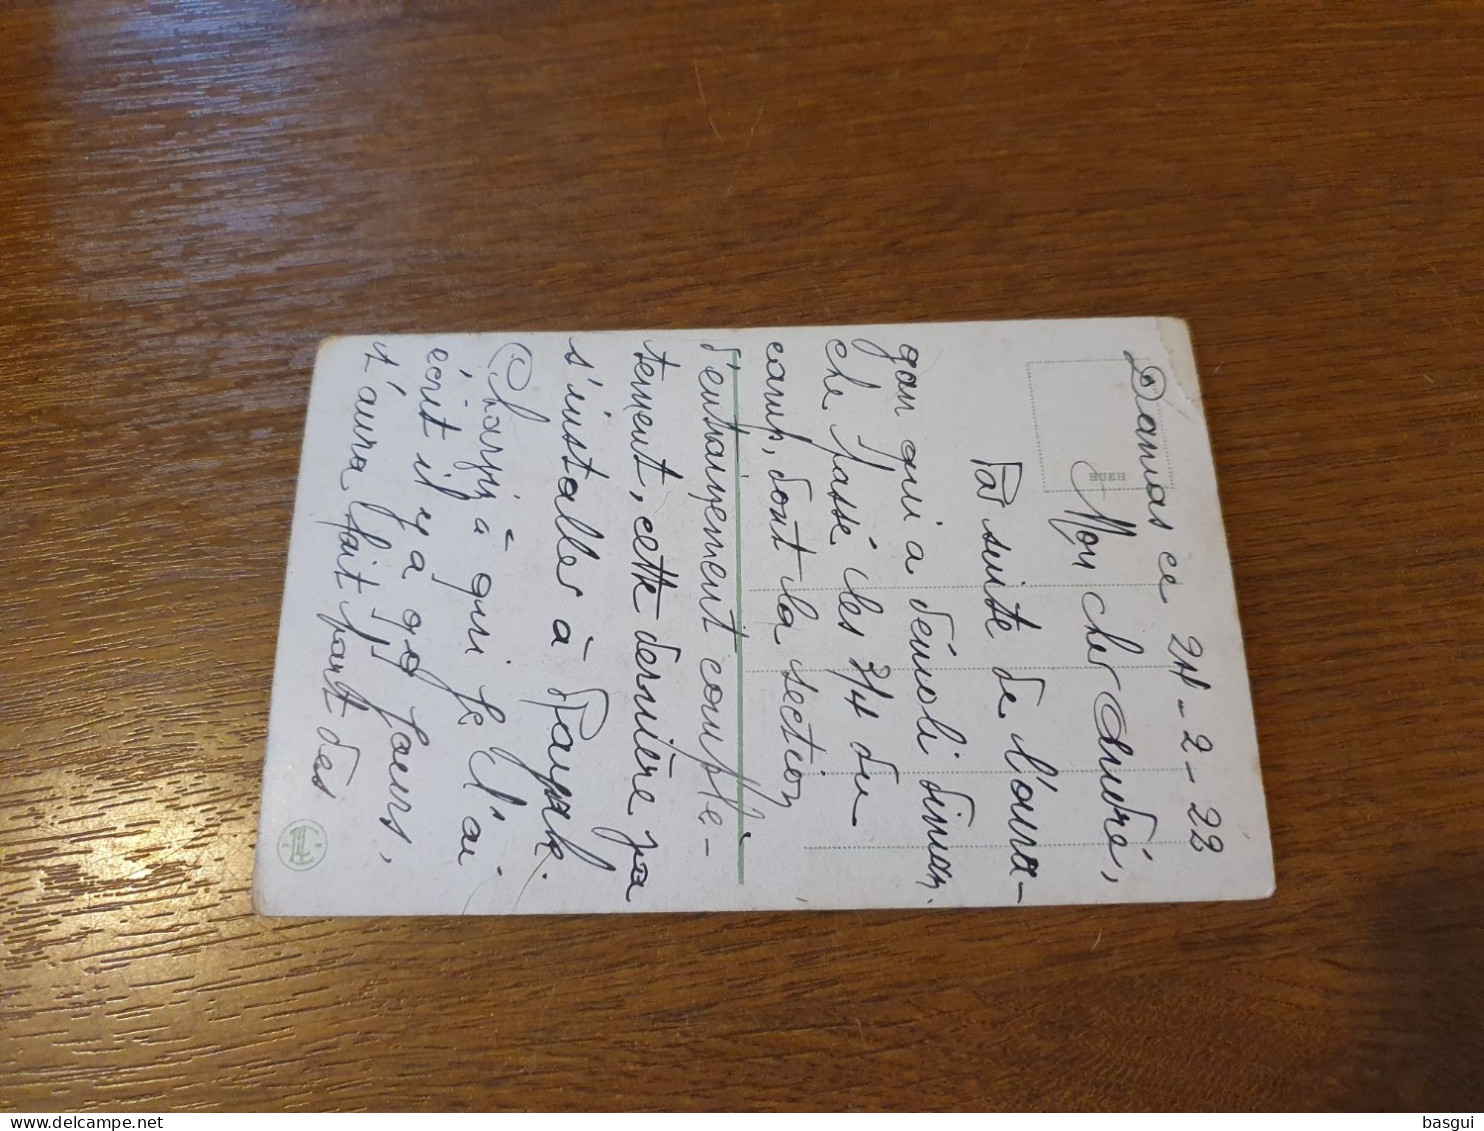 Damas ce 24-2-22
Mon cher André,
Par suite de l'oura-
gan qui a démoli diman
che passé les 3/4 du
camp, dont la section
d'entraînement complè-
tement, cette dernière va
s'installer à Rayak.
Charzy à qui je l'ai
écrit il y a qq jours,
t'aura fait part des
basgui